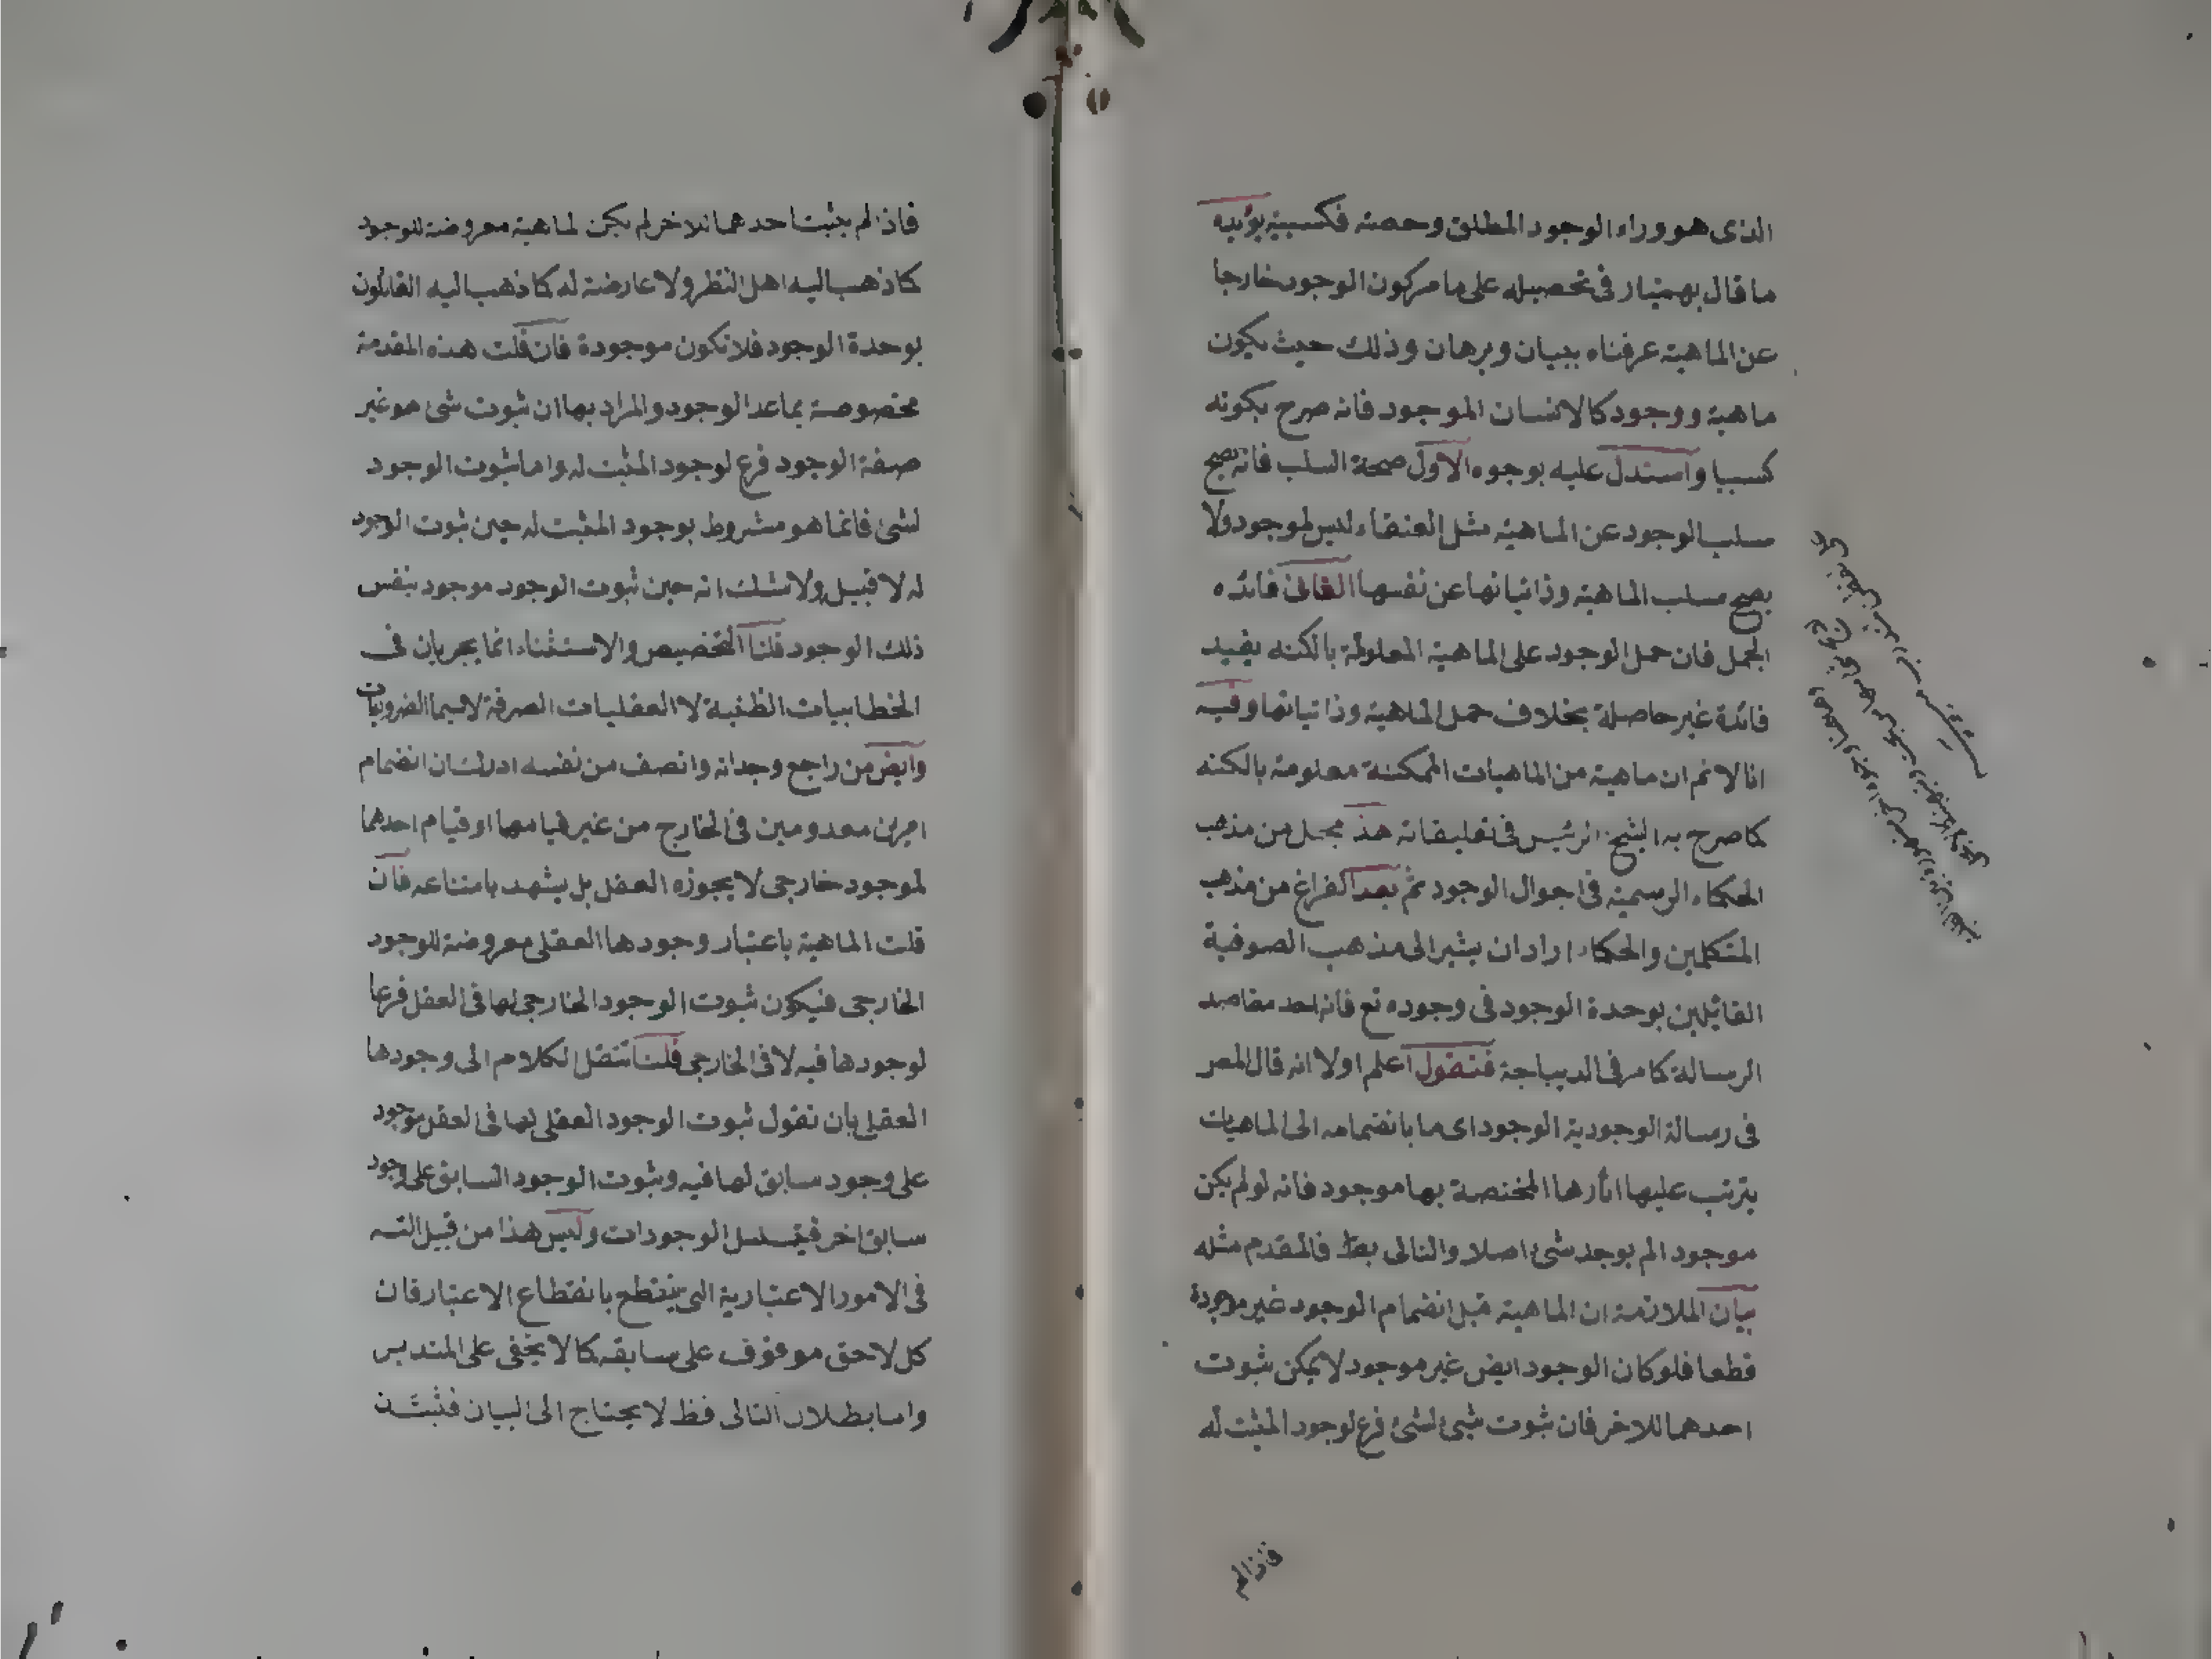 الذى هو وراء الوجود المطلق وحصته فكسبية يؤيده
ما قال بهمنيار فى تحصيله على ما مر كون الوجود خارجا
عن الماهية عرفناه ببيان وبرهان وذلك حيث يكون
ماهية ووجود كالانسان الموجود فانه صرح بكونه
كسبيا واستدل عليه بوجوه الاول صحة السلب فانه يصح
سلب الوجود عن الماهية مثل العنقاء ليس لموجود ولا
يصح سلب الماهية وذاتياتها عن نفسها الثانى فائده
الحمل فان حمل الوجود على الماهية المعلومة بالكنه يفيد
فائدة غير حاصلة بخلاف حمل الماهية وذاتياتها وفيه
انا لا نم ان ماهية من الماهيات الممكنة معلومة بالكنه
كما صرح به الشيخ الرئيس فى تعليقاته هذ مجمل من مذهب
الحكماء الرسمية فى احوال الوجود ثم بعد الفراغ من مذهب
المتكلمين والحكماء اراد ان يشير الى مذهب الصوفية
القائلين بوحدة الوجود فى وجوده تع فانه احد مقاصد
الرسالة كما مر فى الديباجة فنقول اعلم اولا انه قال المصر
فى رسالة الوجودية الوجود اى ما بانضمامه الى الماهيات
يترتب عليها اثارها المختصة بها موجود فانه لو لم يكن
موجودا لم يوجد شئ اصلا والتالى بط فالمقدم مثله
بيان الملازمة ان الماهية قبل انضمام الوجود غير موجودة
قطعا فلو كان الوجود ايض غير موجود لا يمكن ثبوت
احدهما للاخر فان ثبوت شئ لشئ فرع لوجود المثبت له
فاذا لم
فاذا لم يثبت احدهما للاخر لم يكن لماهية معروضة للوجود
كما ذهب اليه اهل النظر ولا عارضة له كما ذهب اليه القائلون
بوحدة الوجود فلا تكون موجودة فان قلت هذه المقدمة
مخصوصة بما عدا الوجود والمراد بها ان ثبوت شئ هو غير
صفة الوجود فرع لوجود المثبت له واما ثبوت الوجود
لشئ فانما هو مشروط بوجود المثبت له حين ثبوت الوجود
له لا قبيل ولا شك انه حين ثبوت الوجود موجود بنفس
ذلك الوجود قلنا التخصيص والاستثناء انما يجريان فى
الخطابيات الظنية لا العقليات الصرفة لا سيما الضروريات
وايض من راجع وجدانه وانصف من نفسه ادرك ان انضمام
امرين معدومين فى الخارج من غير قيامهما او قيام احدهما
لموجود خارجى لا يجوزه العقل بل يشهد بامتناعه فان
قلت الماهية باعتبار وجودها العقلى معروضة للوجود
الخارجى فيكون ثبوت الوجود الخارجى لها فى العقل فرعا
لوجودها فيه لا فى الخارجى قلنا ننقل الكلام الى وجودها
العقلى بان نقول ثبوت الوجود العقلى لها فى العقل موجود
على وجود سابق لها فيه وثبوت الوجود السابق على وجود
سابق اخر فيتسلسل الوجودات وليس هذا من قبيل التسـ
فى الامور الاعتبارية التى ينقطع بانقطاع الاعتبار فان
كل لاحق موقوف على سابقه كما لا يخفى على المتدبر
واما بطلان التالى فظ لا يحتاج الى البيان فثبت